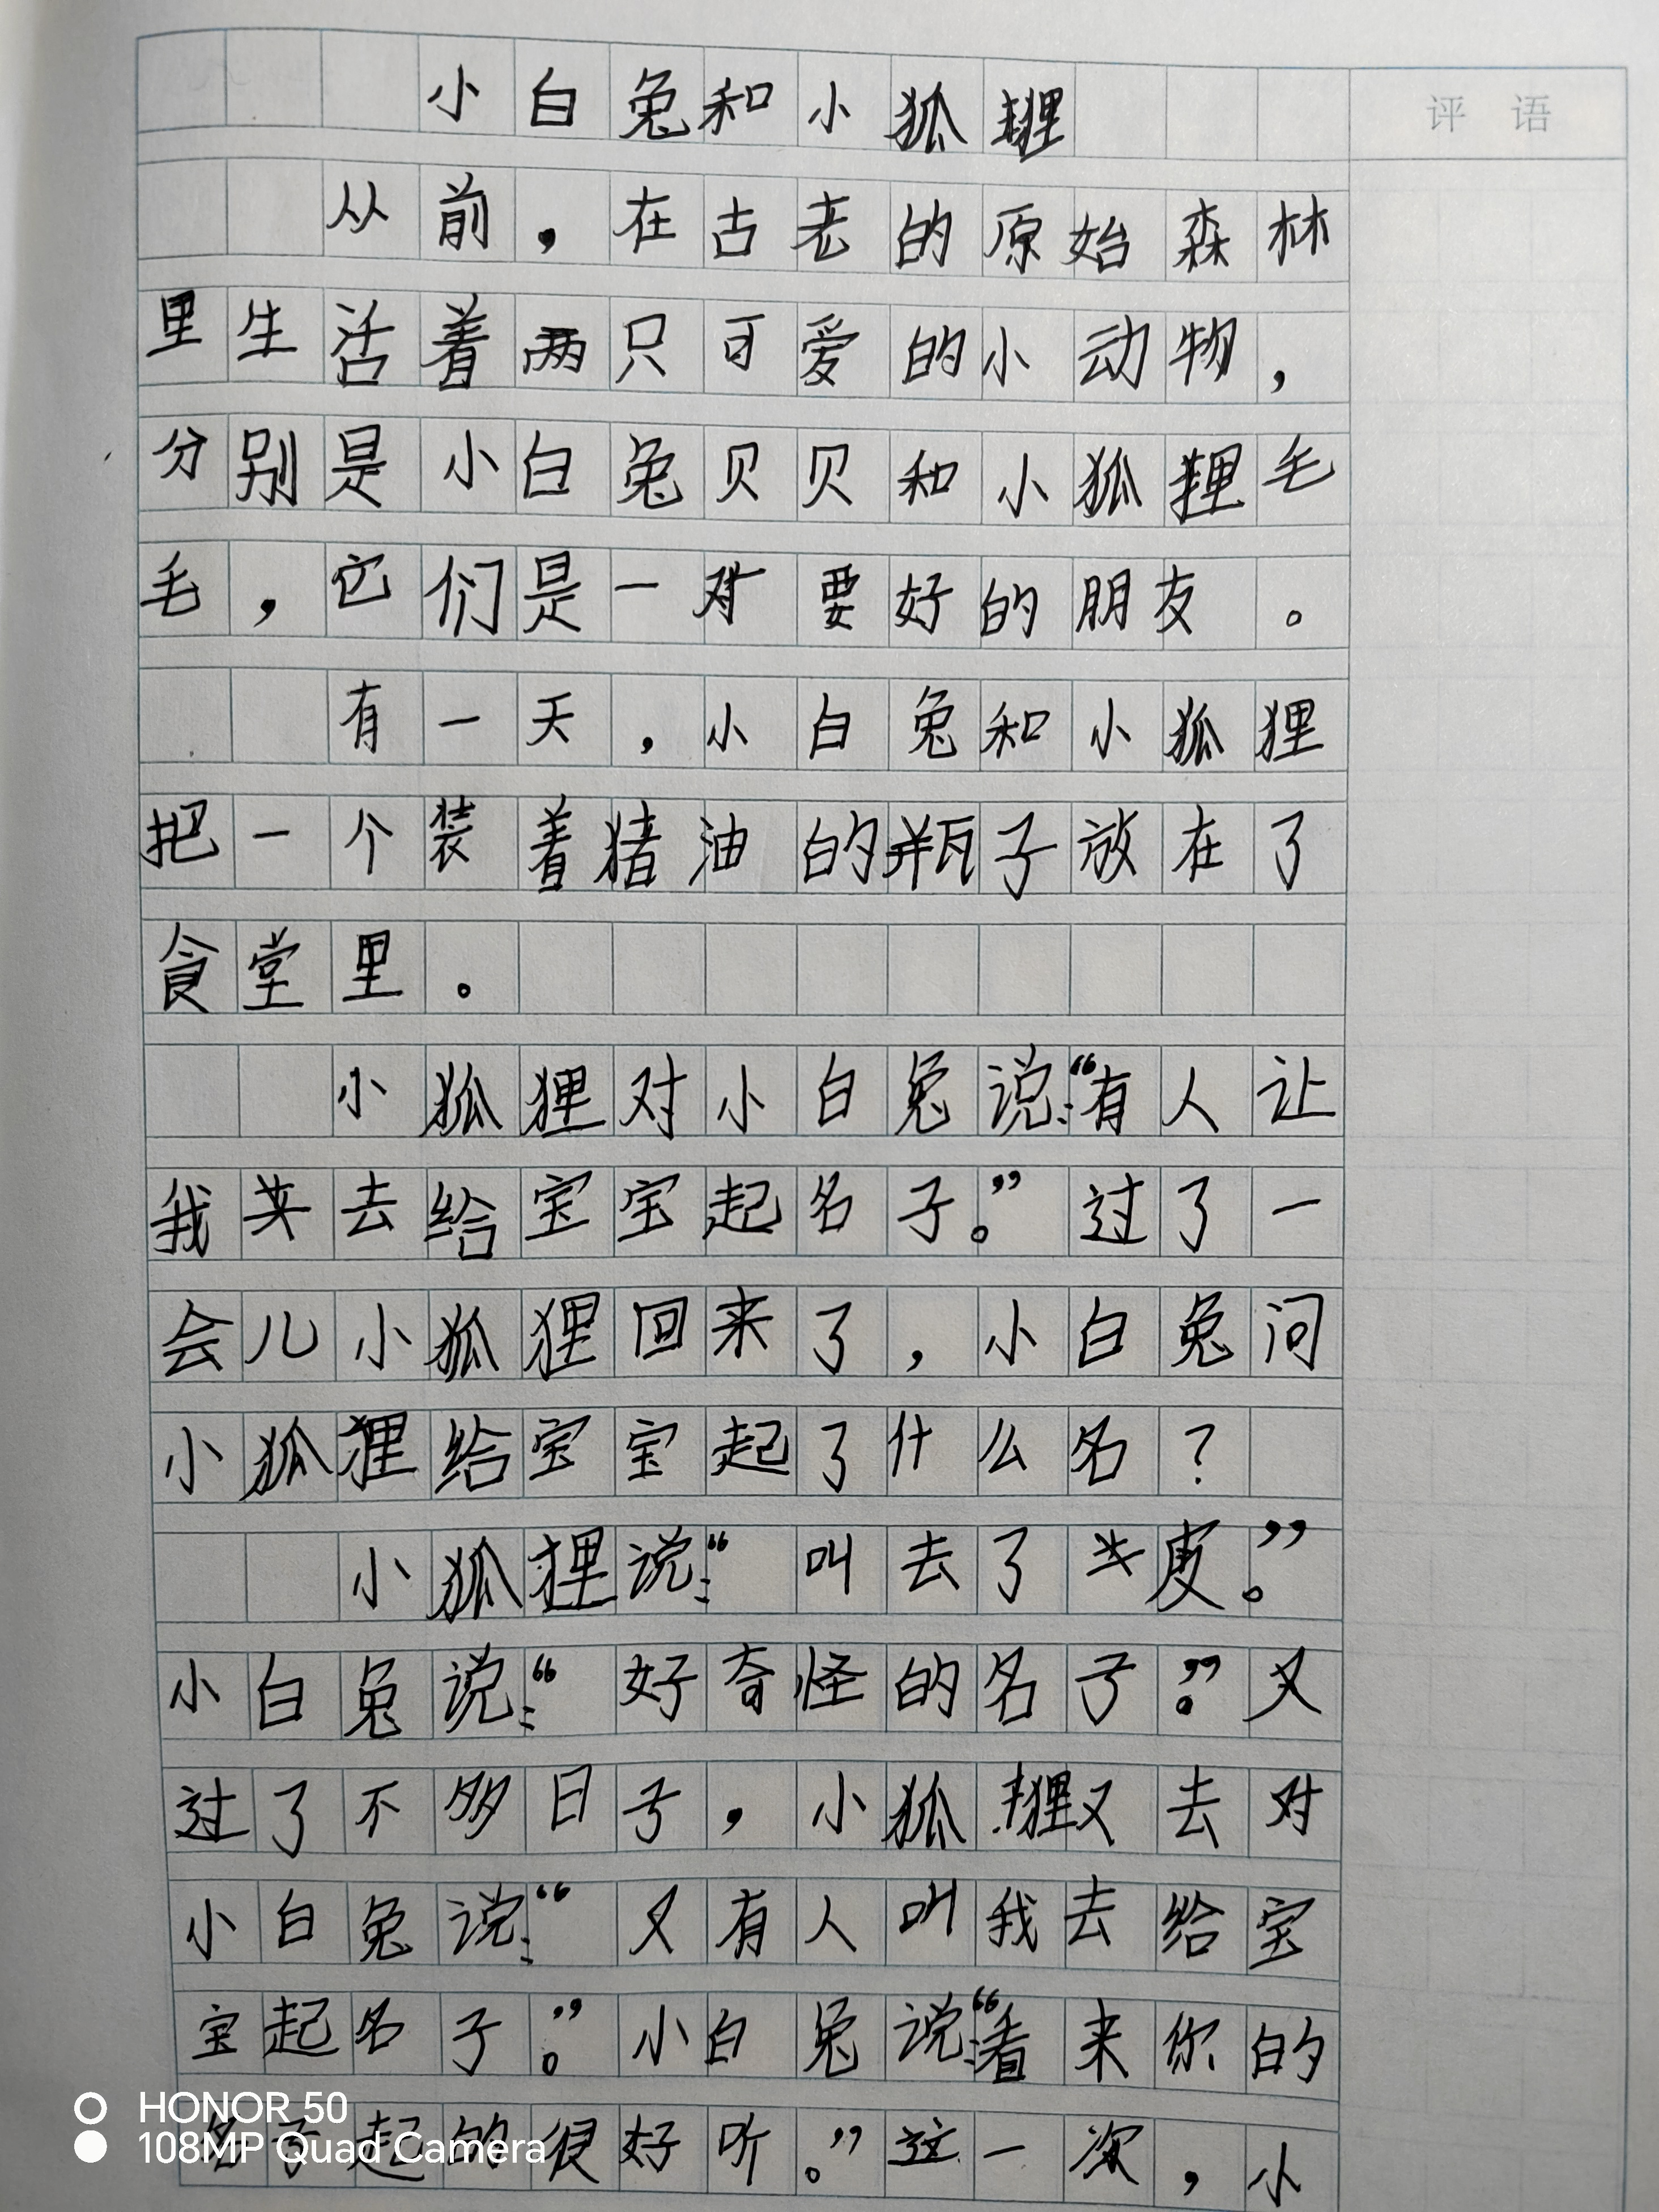 小白兔和小狐狸
评语
从前，在古老的原始森林
里生活着两只可爱的小动物，
分别是小白兔贝贝和小狐狸毛
毛，它们是一对要好的朋友。
有一天，小白兔和小狐狸
把一个装着猪油的瓶子放在了
食堂里。
小狐狸对小白兔说：“有人让
我去给宝宝起名子。”过了一
会儿小狐狸回来了，小白兔问
小狐狸给宝宝起了什么名？
小狐狸说：“叫去了皮。”
小白兔说：“好奇怪的名子。”又
过了不多日子，小狐狸又去对
小白兔说：“又有人叫我去给宝
宝起名子。”小白兔说：“看来你的
名子起的很好听。”这一次，小
HONOR 50
108MP Quad Camera